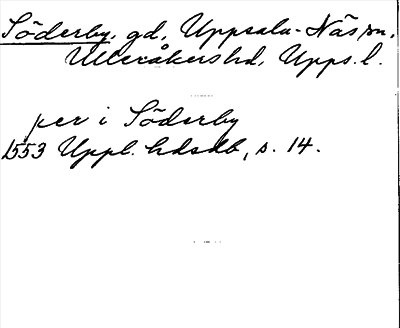 Söderby, gd, Uppsala-Näs sn,
Ulleråkers hd, Upps. l.
per i Söderby
1553 Uppl. hdsdb, s. 14.